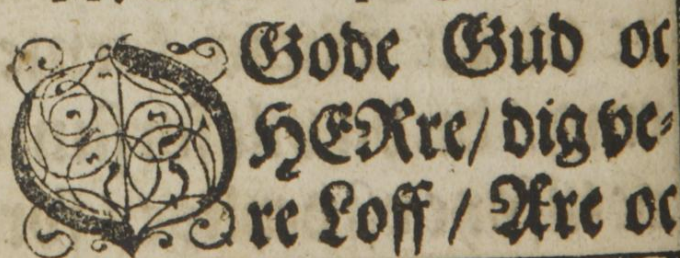 O Gode Gud oc
HERre/ dig ve-
re Loff / Ære oc